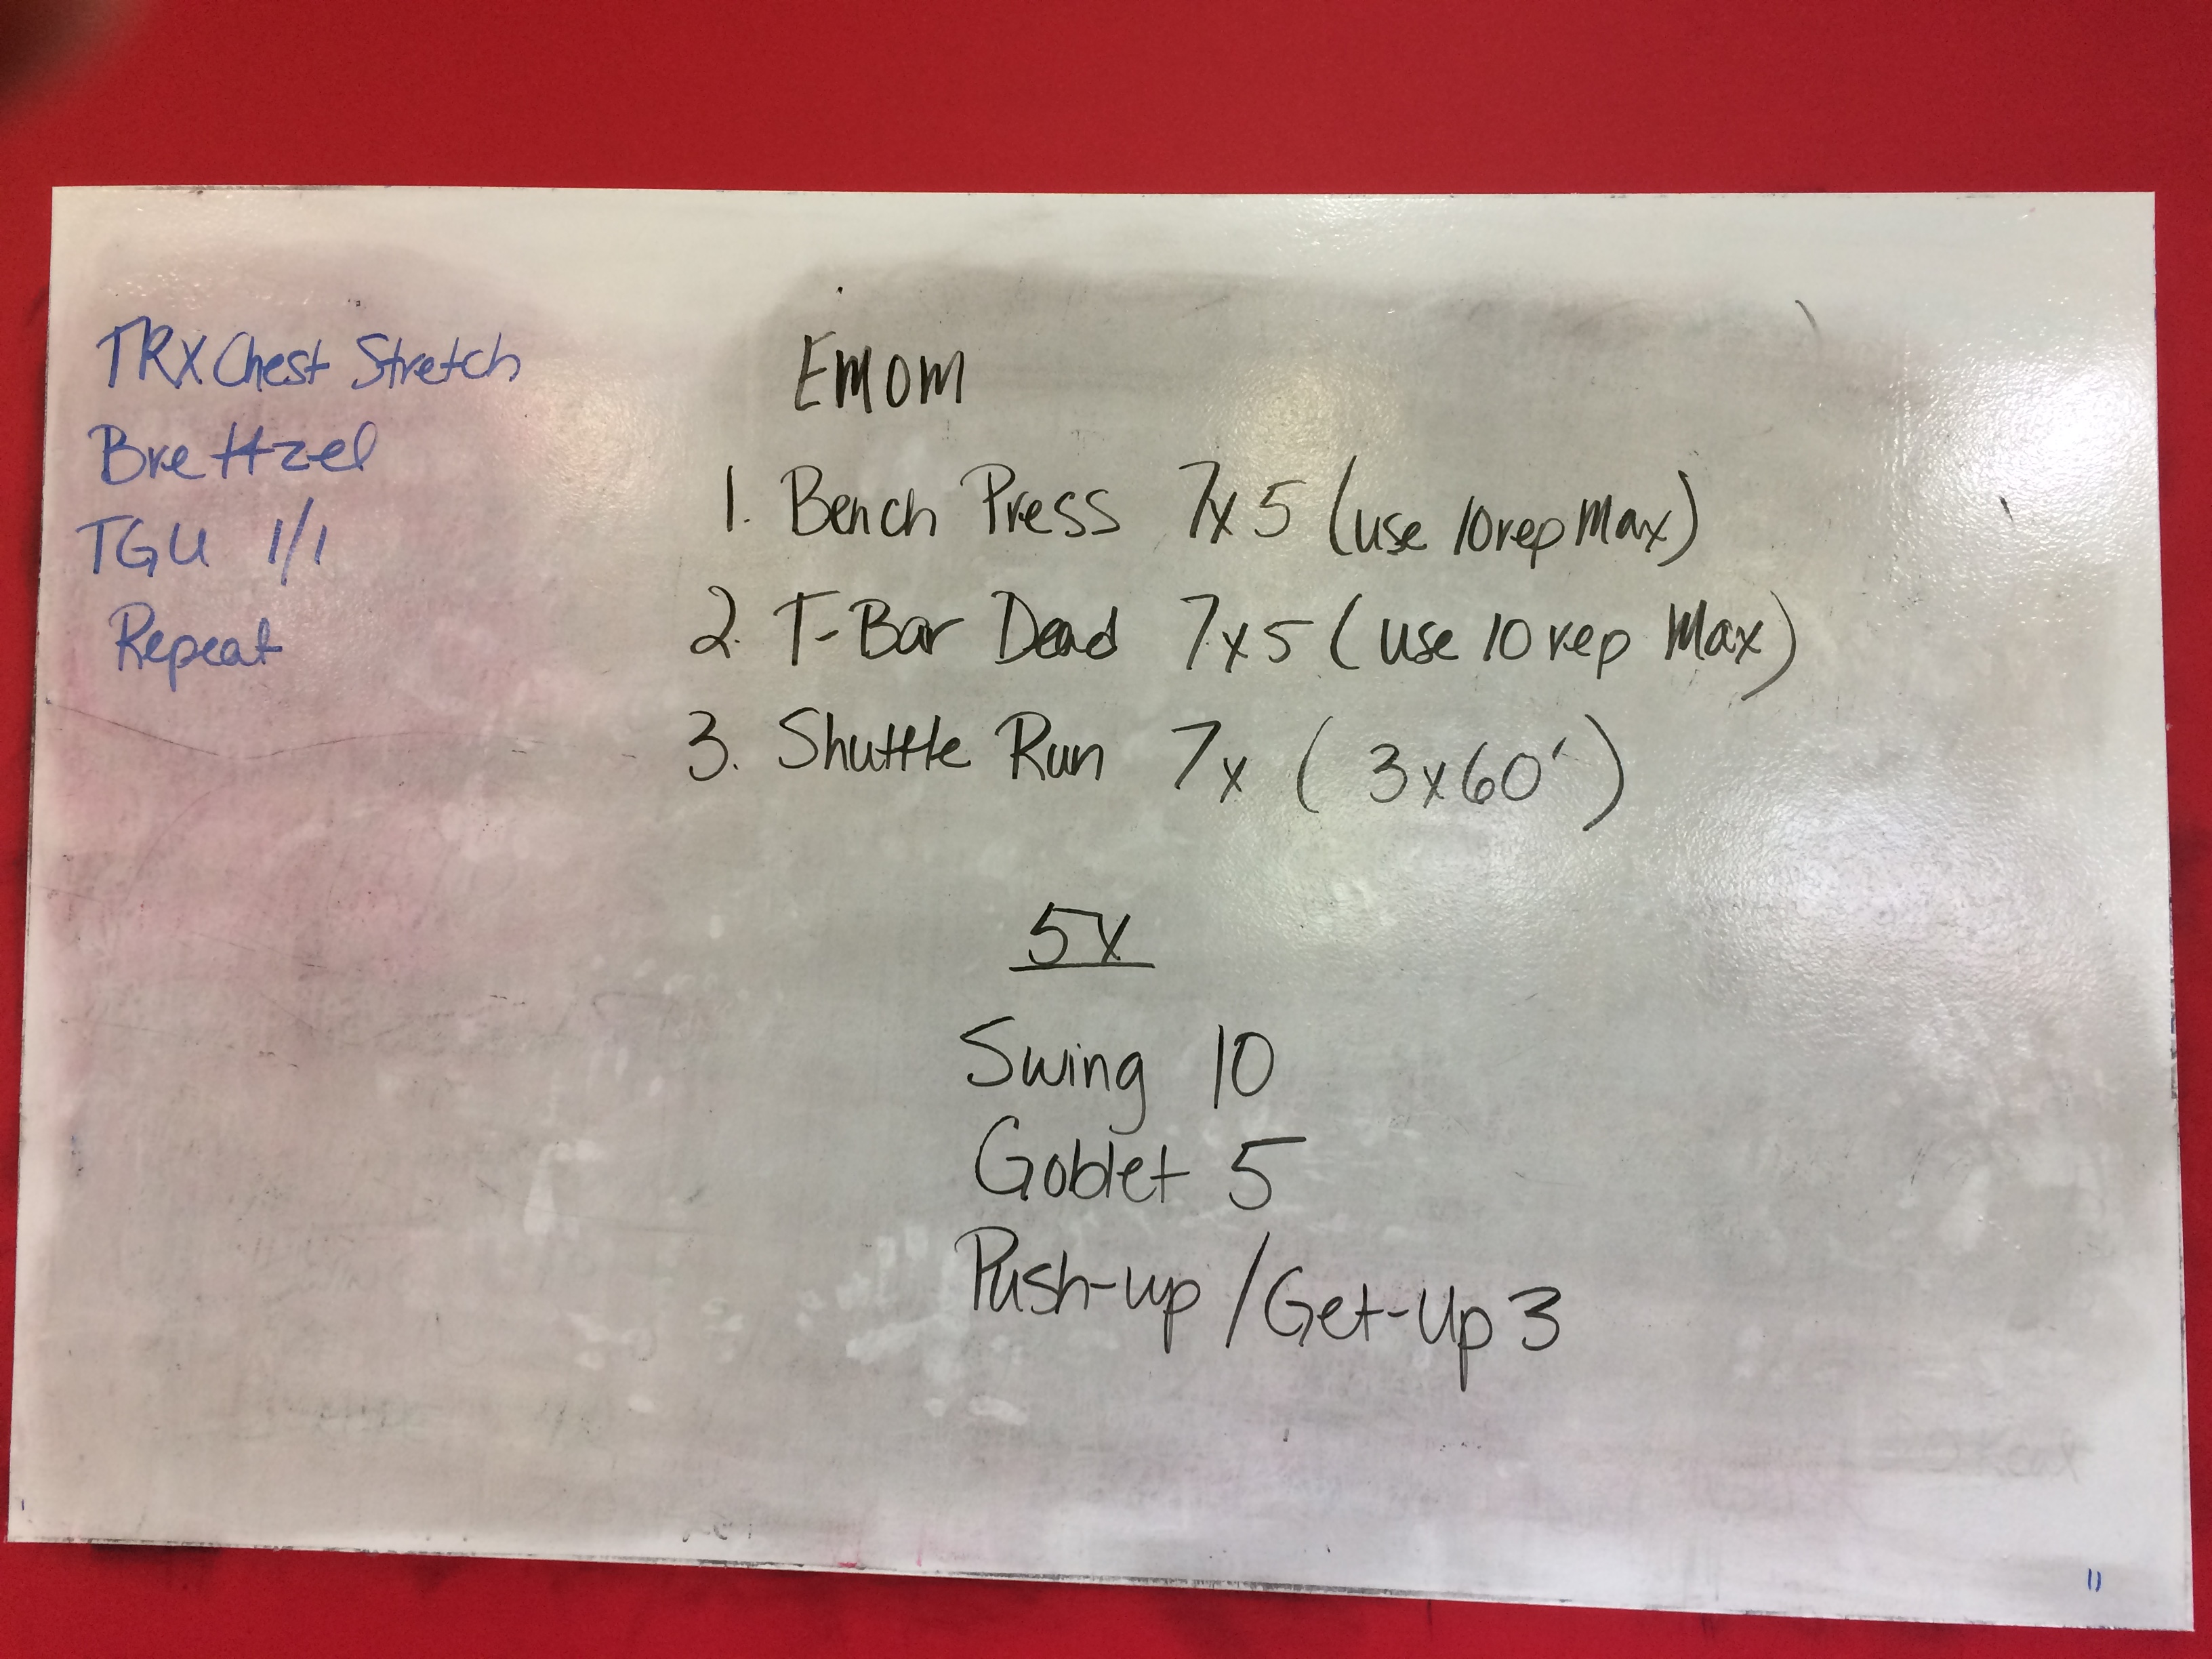 TRX Chest Stretch
Brettzel
TGU 1/1
Repeat
EMOM
1. Bench Press 7x5 (use 10 rep Max)
2. T-Bar Dead 7x5 (use 10 rep Max)
3. Shuttle Run 7x (3x60')
5X
Swing 10
Goblet 5
Push-up/Get-Up 3